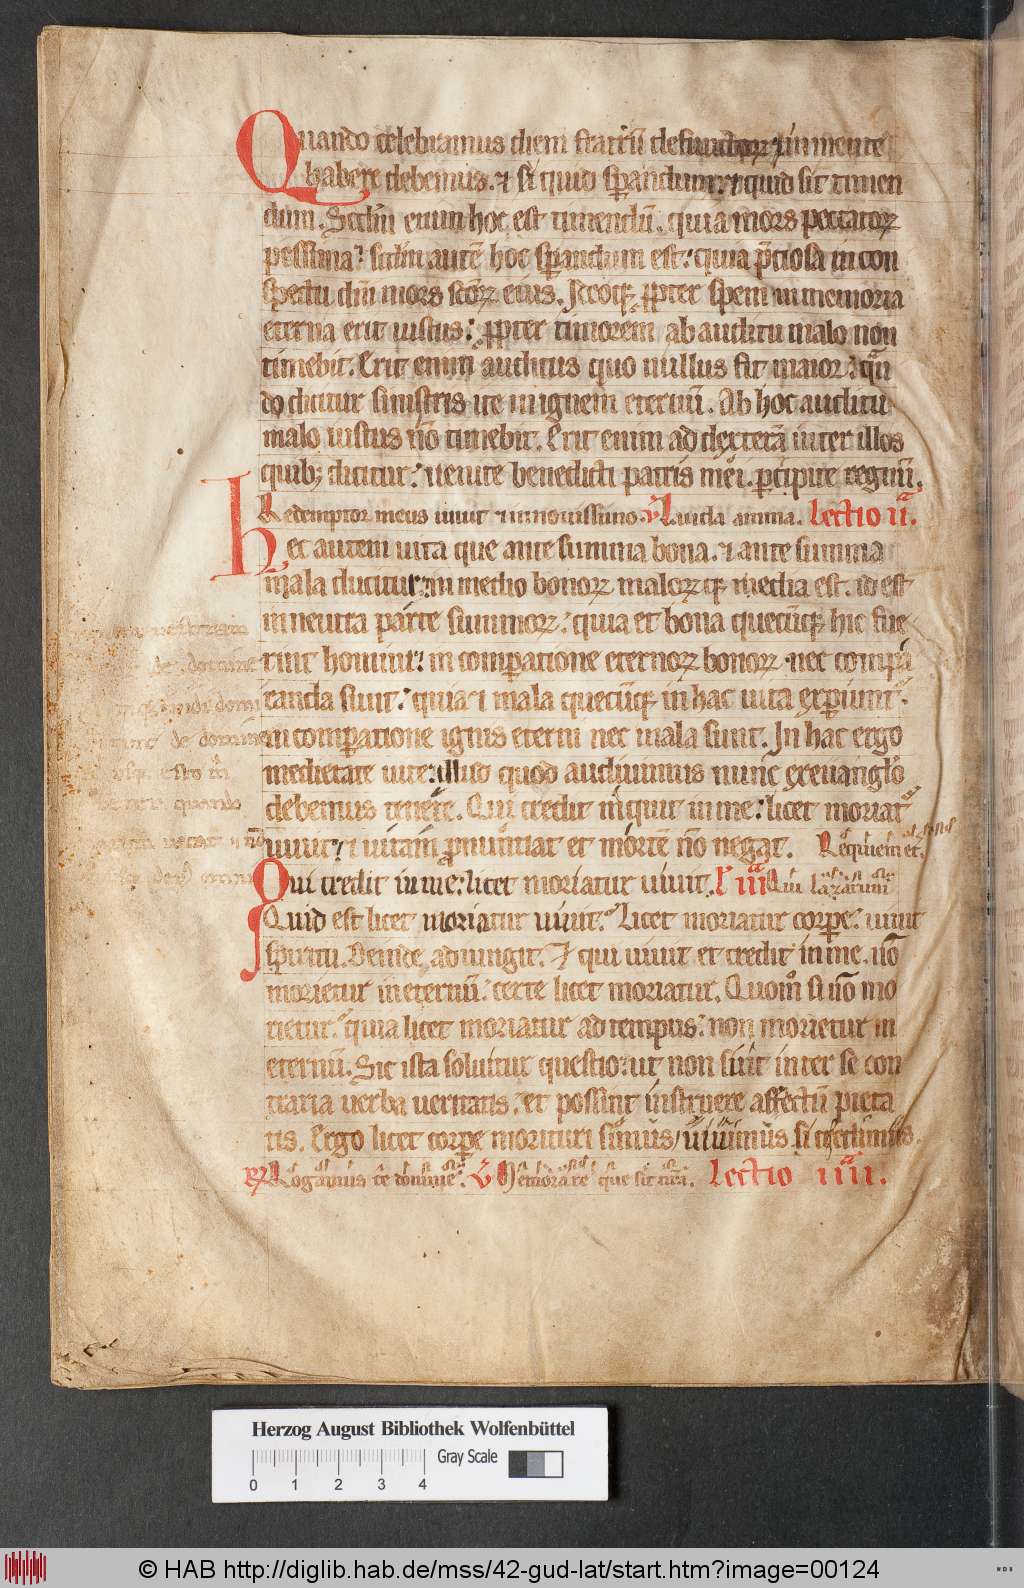 Quando celebramus diem fratrū defunctorꝝ ⁊ in mente
habere debemus. ⁊ si quid sperandum: ⁊ quid sit timen
dum. Scdm̄ enim hoc est timendū. quia mors peccatorꝝ
pessima: scdm̄ autē hoc sꝑandum est: quia p̄ciosa in con
spectu dn̄i mors scōꝝ eius. Iccirq; ꝓpter spem in memoria
eterna erit iustus: ꝓpter timorem ab auditu malo non
timebit. Erit enim auditus quo nullus fit maior: qn̄
do dicitur sinistris ite in ignem eternū. Ab hoc auditu
malo iustus nō timebit. Erit enim ad dexterā inter illos
quib; dicitur: uenite benedicti patris mei. ꝑcipite regnū.
Redemptor meus uiuit ⁊ in nouissimo. V̄ Lauda anima. Lectio ii.ᵃ
Hec autem uita que ante summa bona. ⁊ ante summa
mala ducitur: in medio bonorꝝ malorꝝq; media est. id est
in neutra parte summorꝝ: quia et bona quecūq; hic fue
rint homini: in comꝑatione eternorꝝ bonorꝝ nec compu
tanda sunt: quia ⁊ mala quecūq; in hac uita exꝑiunt᷑:
in comꝑatione ignis eterni nec mala sunt. In hac ergo
medietate uite: illud quod audiuimus nunc ex euanglo
debemus tenere. Qui credit inquit in me: licet moriat᷑
uiuit: ⁊ uitam pronuntiat et mortē nō negat. Requiem et̄.
Qui credit in me: licet moriatur uiuit. L iiiᵃ Qui lazarum
Quid est licet moriatur uiuit: Licet moriatur corꝑe: uiuit
spiritu. Deinde adiungit. Et qui uiuit et credit in me. nō
morietur in eternū: certe licet moriatur. Quomº si nō mo
rietur: quia licet moriatur ad tempus: non morietur in
eternū. Sic ista soluitur questio: ut non sint inter se con
traria uerba ueritatis: et possint instruere affectū pieta
tis. Ergo licet corꝑe morituri simus, uiuimus si credimus.
℟ Rogamus te domine. V̄ Memorare que sit nr̄a. Lectio iiii.ᵃ
de domine
domi
de domine
quando
Herzog August Bibliothek Wolfenbüttel
Gray Scale
0 1 2 3 4
© HAB http://diglib.hab.de/mss/42-gud-lat/start.htm?image=00124